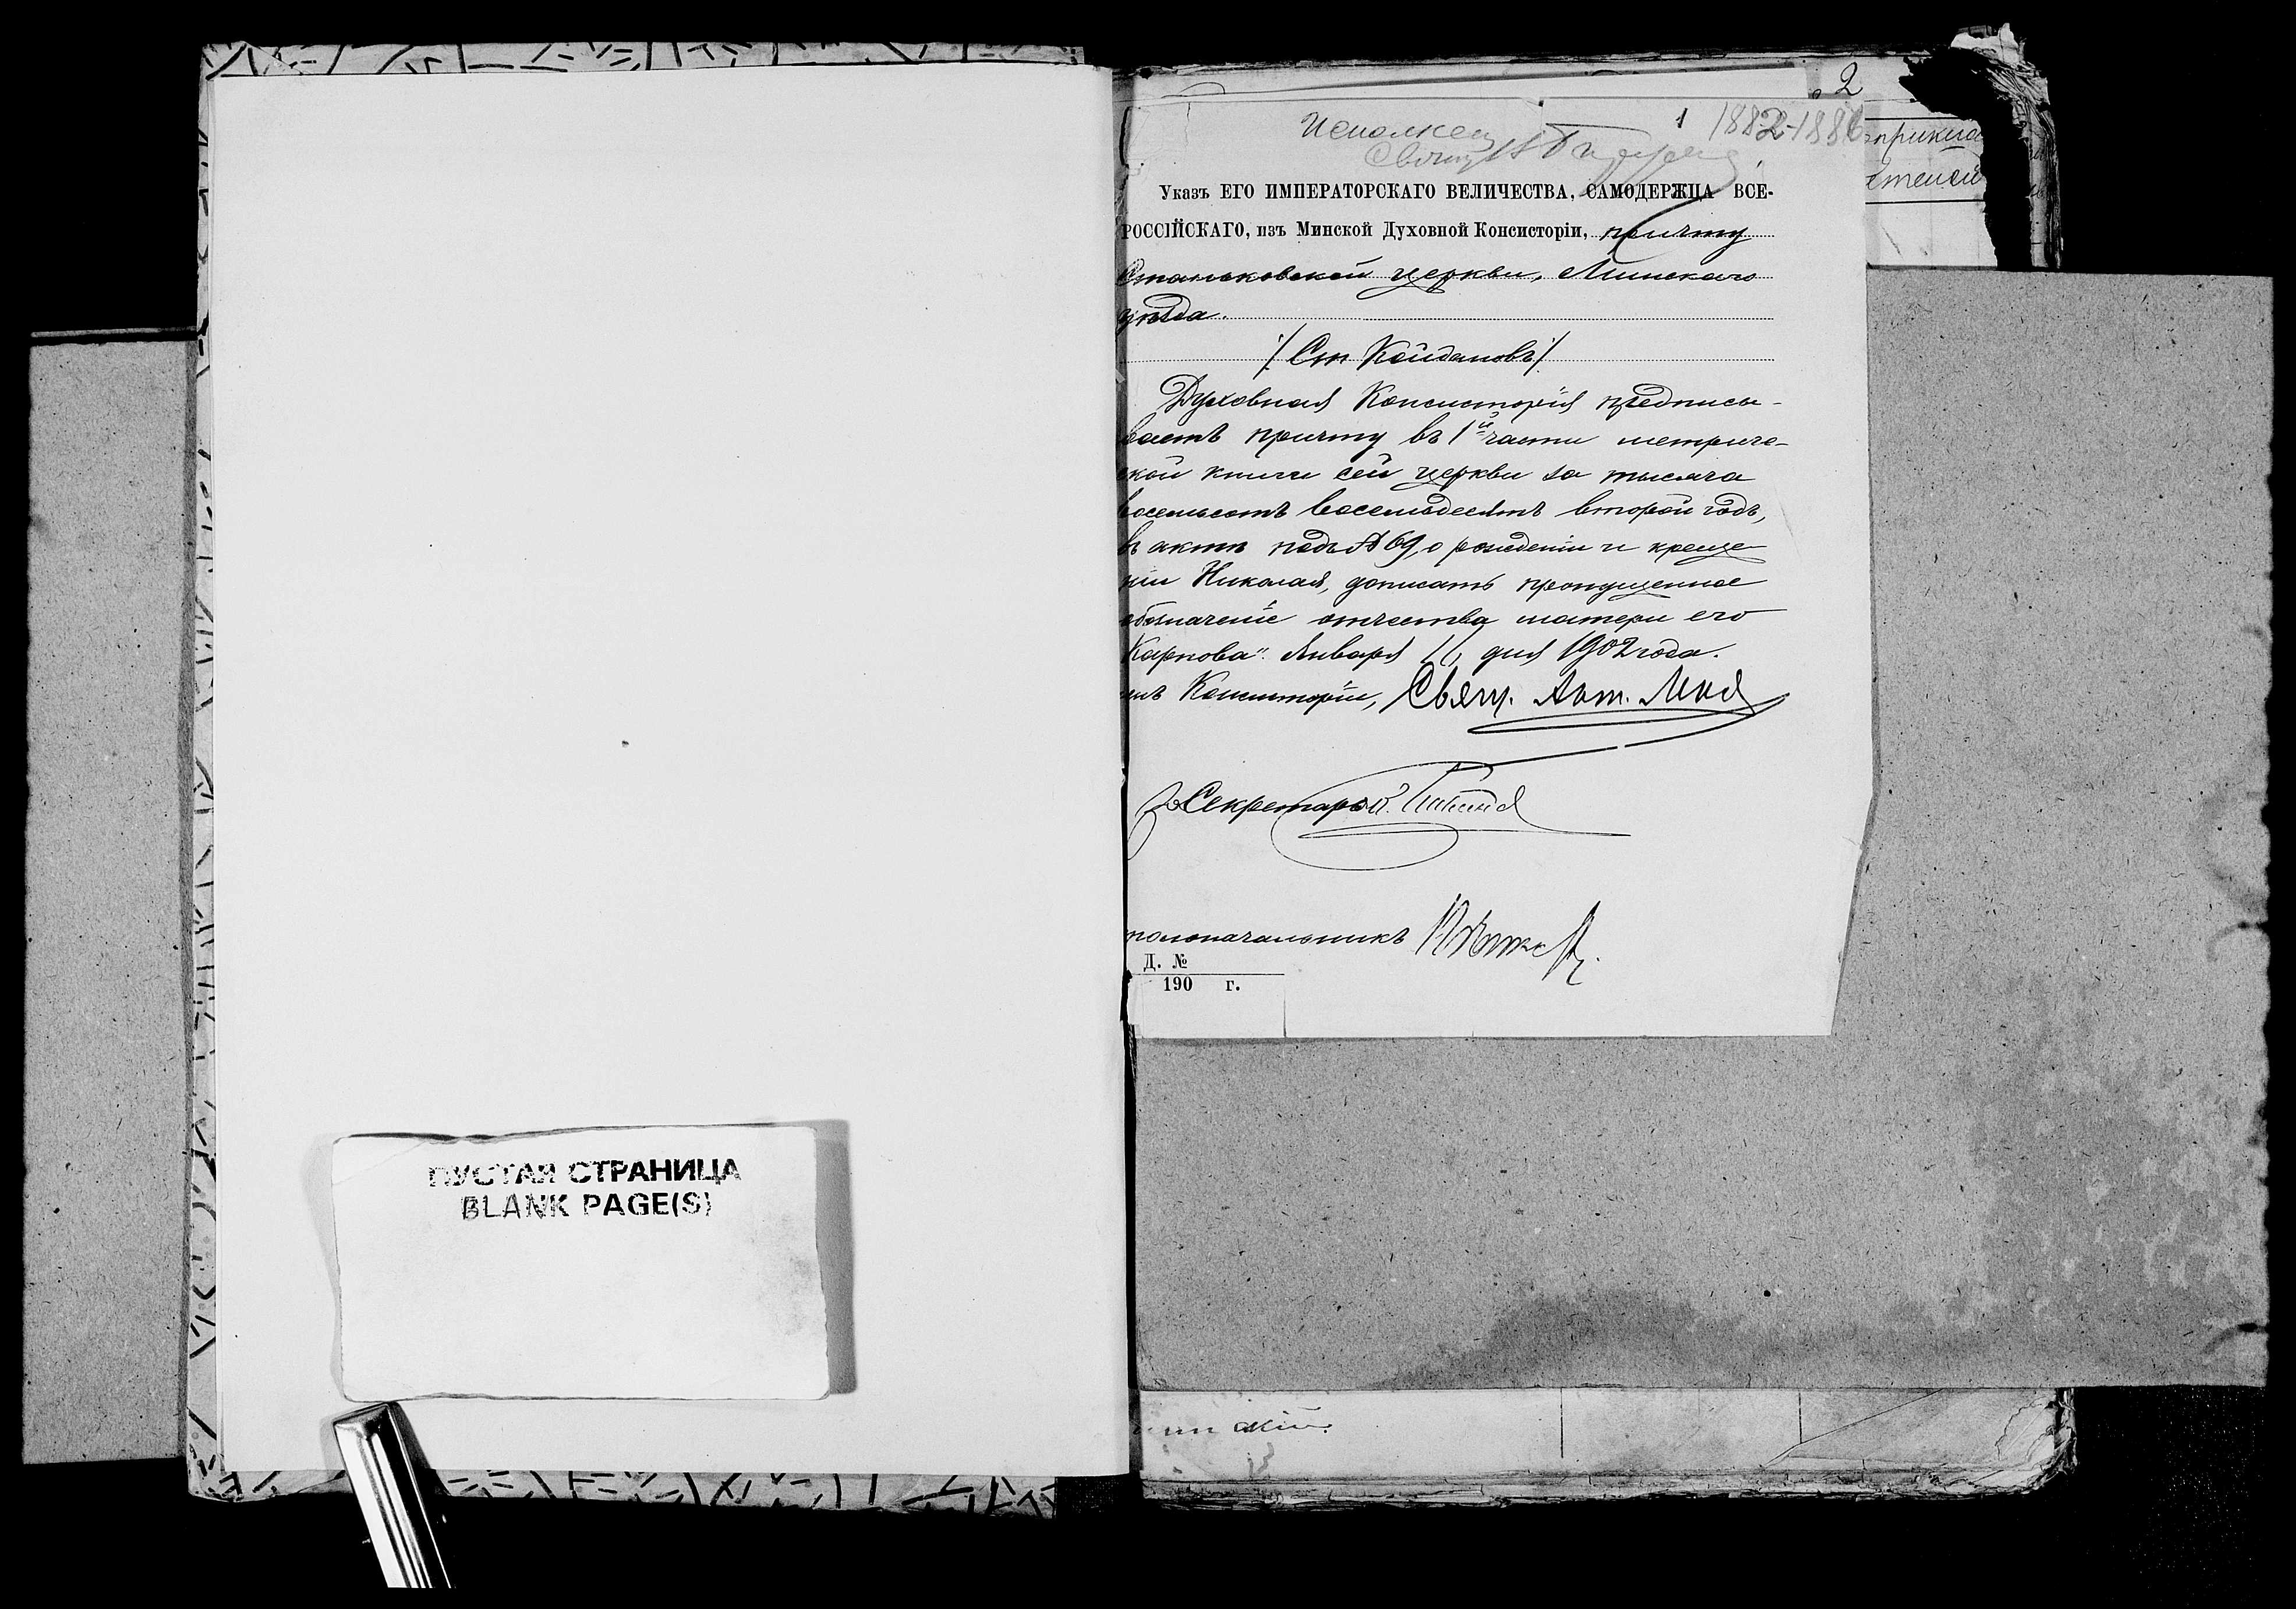 ПУСТАЯ СТРАНИЦА
BLANK PAGE(S)
2
1 1882-1886
Исполнен
Свящ
Указъ ЕГО ИМПЕРАТОРСКАГО ВЕЛИЧЕСТВА, САМОДЕРЖЦА ВСЕ-
РОССІЙСКАГО, изъ Минской Духовной Консисторіи, причту
Станьковской церкви, Минскаго
уѣзда.
/Ст Койдановъ/
Духовная Консисторія предписы-
ваетъ причту въ 1й части метриче-
ской книги сей церкви за тысяча
восемьсотъ восемьдесятъ второй годъ,
въ актѣ подъ № 69, о рожденіи и креще
ніи Николая, дописать пропущенное
обозначеніе отчества матери его
Карпова". Января 11 дня 1902 года.
Консисторіи, Свящ. Ант.
Секретарь
толоначальникъ
Д. №
190 г.